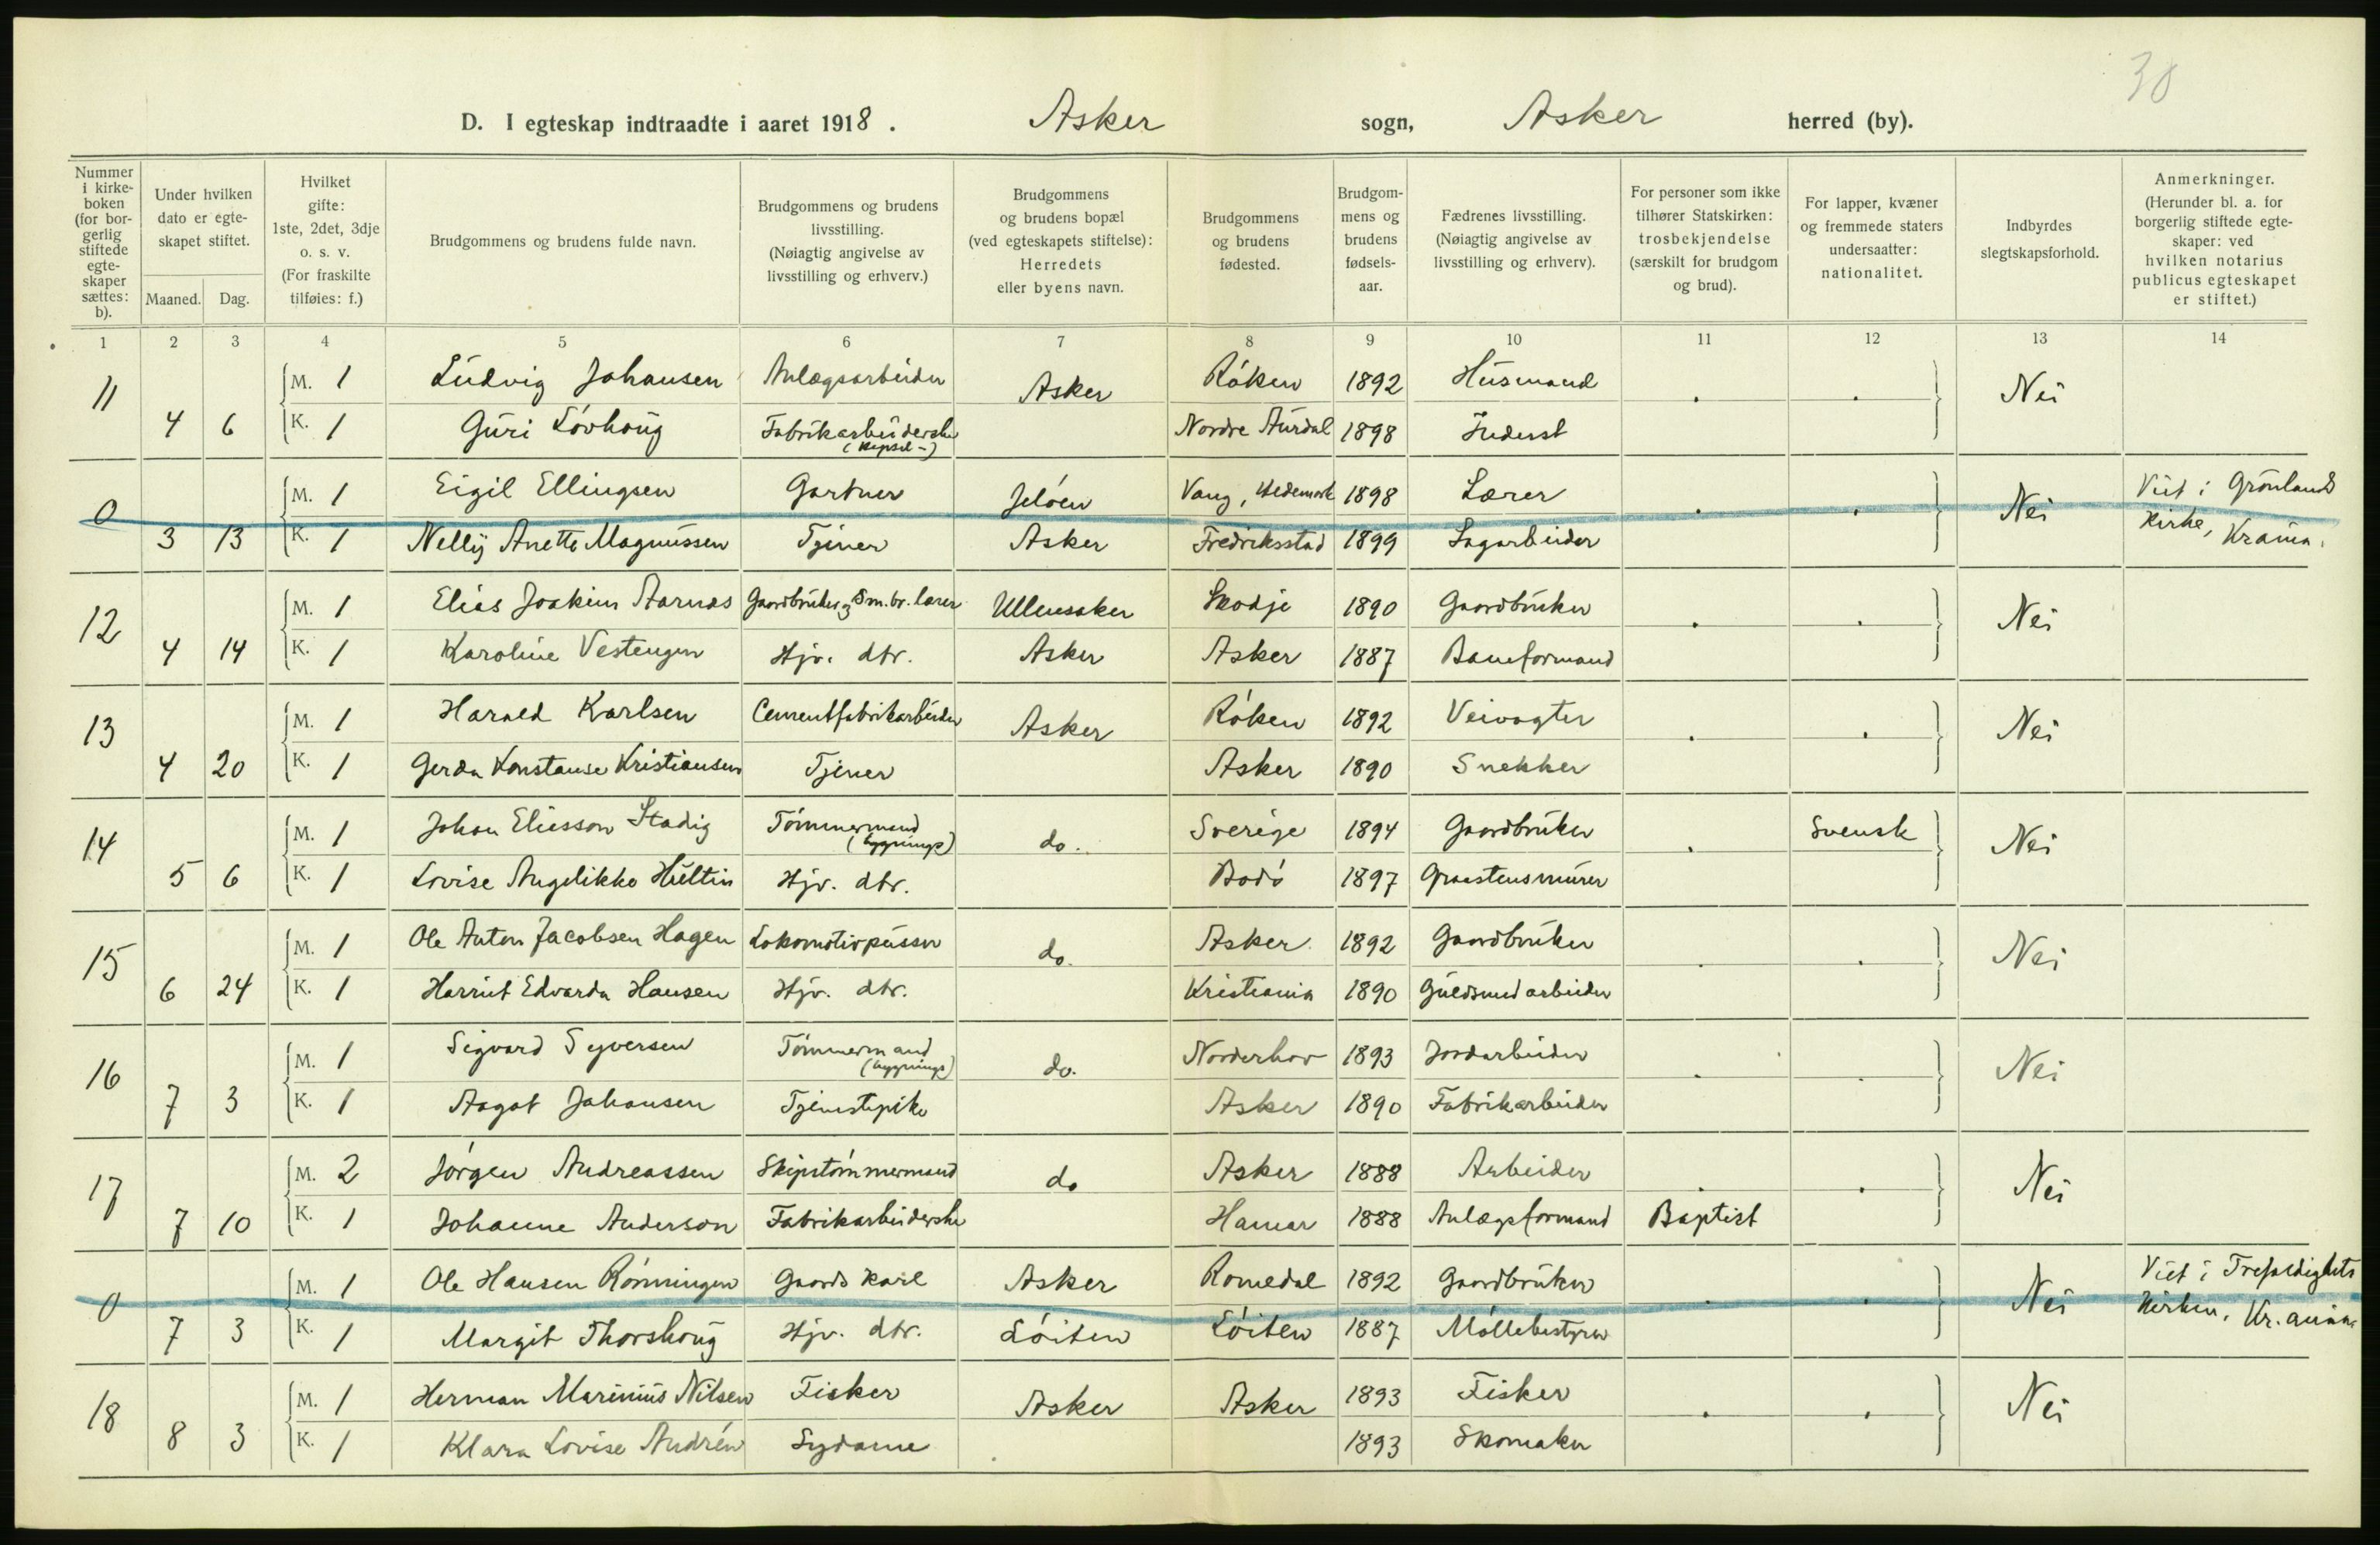 30
D. I egteskap indtraadte i aaret 1918. Asker sogn, Asker herred (by).
Nummer i kirke- boken (for bor- gerlig stiftede egte- skaper sættes: b).
Under hvilken dato er egte- skapet stiftet.
Maaned. Dag.
Hvilket gifte: 1ste, 2det, 3dje o. s. v. (For fraskilte tilføies: f.)
Brudgommens og brudens fulde navn.
Brudgommens og brudens livsstilling. (Nøiagtig angivelse av livsstilling og erhverv.)
Brudgommens og brudens bopæl (ved egteskapets stiftelse): Herredets eller byens navn.
Brudgommens og brudens fødested.
Brudgom- mens og brudens fødsels- aar.
Fædrenes livsstilling. (Nøiagtig angivelse av livsstilling og erhverv).
For personer som ikke tilhører Statskirken: trosbekjendelse (særskilt for brudgom og brud).
For lapper, kvæner og fremmede staters undersaatter: nationalitet.
Indbyrdes slegtskapsforhold.
Anmerkninger. (Herunder bl. a. for borgerlig stiftede egte- skaper: ved hvilken notarius publicus egteskapet er stiftet.)
1 2 3 4 5 6 7 8 9 10 11 12 13 14
11 M. 1 Ludvig Johansen Anlægsarbeider Asker Røken 1892 Husmand Nei
4 6 K. 1 Guri Løvhaug Fabrikarbeiderske (Kapsel-) Nordre Aurdal 1898 Inderst
0 M. 1 Eigil Ellingsen Gartner Jeløen Vang, Hedemark 1898 Lærer Nei Viet i Grønlands
3 13 K. 1 Nelly Anette Magnussen Tjener Asker Fredriksstad 1899 Sagarbeider Kirke, Krania.
12 M. 1 Elias Joakim Aarnes Gaardbruker og Sm.br. lærer Ullensaker Skodje 1890 Gaardbruker Nei
4 14 K. 1 Karoline Vestengen Hjv. dtr. Asker Asker 1887 Baneformand
13 M. 1 Harald Karlsen Cementfabrikarbeider Asker Røken 1892 Veivogter Nei
4 20 K. 1 Gerda Konstanse Kristiansen Tjener Asker 1890 Snekker
14 M. 1 Johan Eliesson Stadig Tømmermand (bygnings) do. Sverige 1894 Gaardbruker Svensk Nei
5 6 K. 1 Lovise Angelikke Hultin Hjv. dtr. Bodø 1897 Graastensmurer
15 M. 1 Ole Anton Jacobsen Hagen Lokomotivpusser do. Asker 1892 Gaardbruker Nei
6 24 K. 1 Harriet Edvarda Hansen Hjv. dtr. Kristiania 1890 Guldsmedarbeider
16 M. 1 Sigvard Syversen Tømmermand (bygnings) do. Norderhov 1893 Jordarbeider Nei
7 3 K. 1 Aagot Johansen Tjenestepike Asker 1890 Fabrikarbeider
17 M. 2 Jørgen Andreassen Skipstømmermand do Asker 1888 Arbeider Nei
7 10 K. 1 Johanne Anderson Fabrikarbeiderske Hamar 1888 Anlægsformand Baptist
0 M. 1 Ole Hansen Rønningen Gaards karl Asker Romedal 1892 Gaardbruker Nei Viet i Trefoldighets
7 3 K. 1 Margit Thorshoug Hjv. dtr. Løiten Løiten 1887 Møllebestyrer Kirken, Kr.ania.
18 M. 1 Herman Marinius Nilsen Fisker Asker Asker 1893 Fisker Nei
8 3 K. 1 Klara Lovise Andrén Sydame 1893 Skomaker